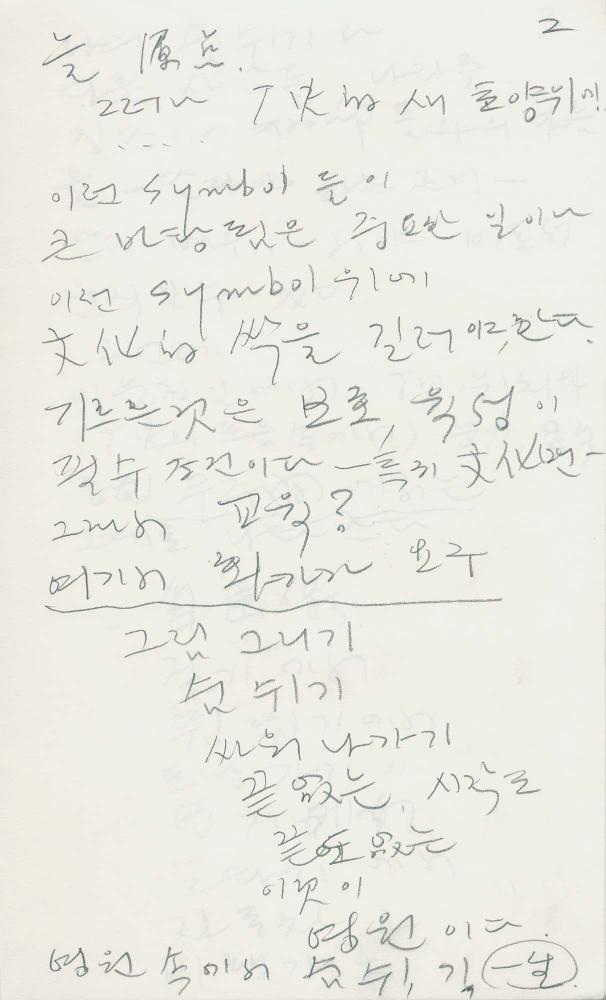 2
늘 原点.
그러나 T 못에서 새 토양위에
.....
이런 symbol 들이
큰 바탕 됨은 중요한 일이나
이런 symbol 위에
文化에 싹을 길러야 한다.
기르는것은 보호, 육성이
필수 조건이다 — 특히 文化면 —
그래서 교육?
여기서 화가가 요구
그림 그리기
숨 쉬기
싸워 나가기
끝없는, 시작도
끝도 없는
이것이
영원 이다.
영원 속에서 숨 쉬기, 一生